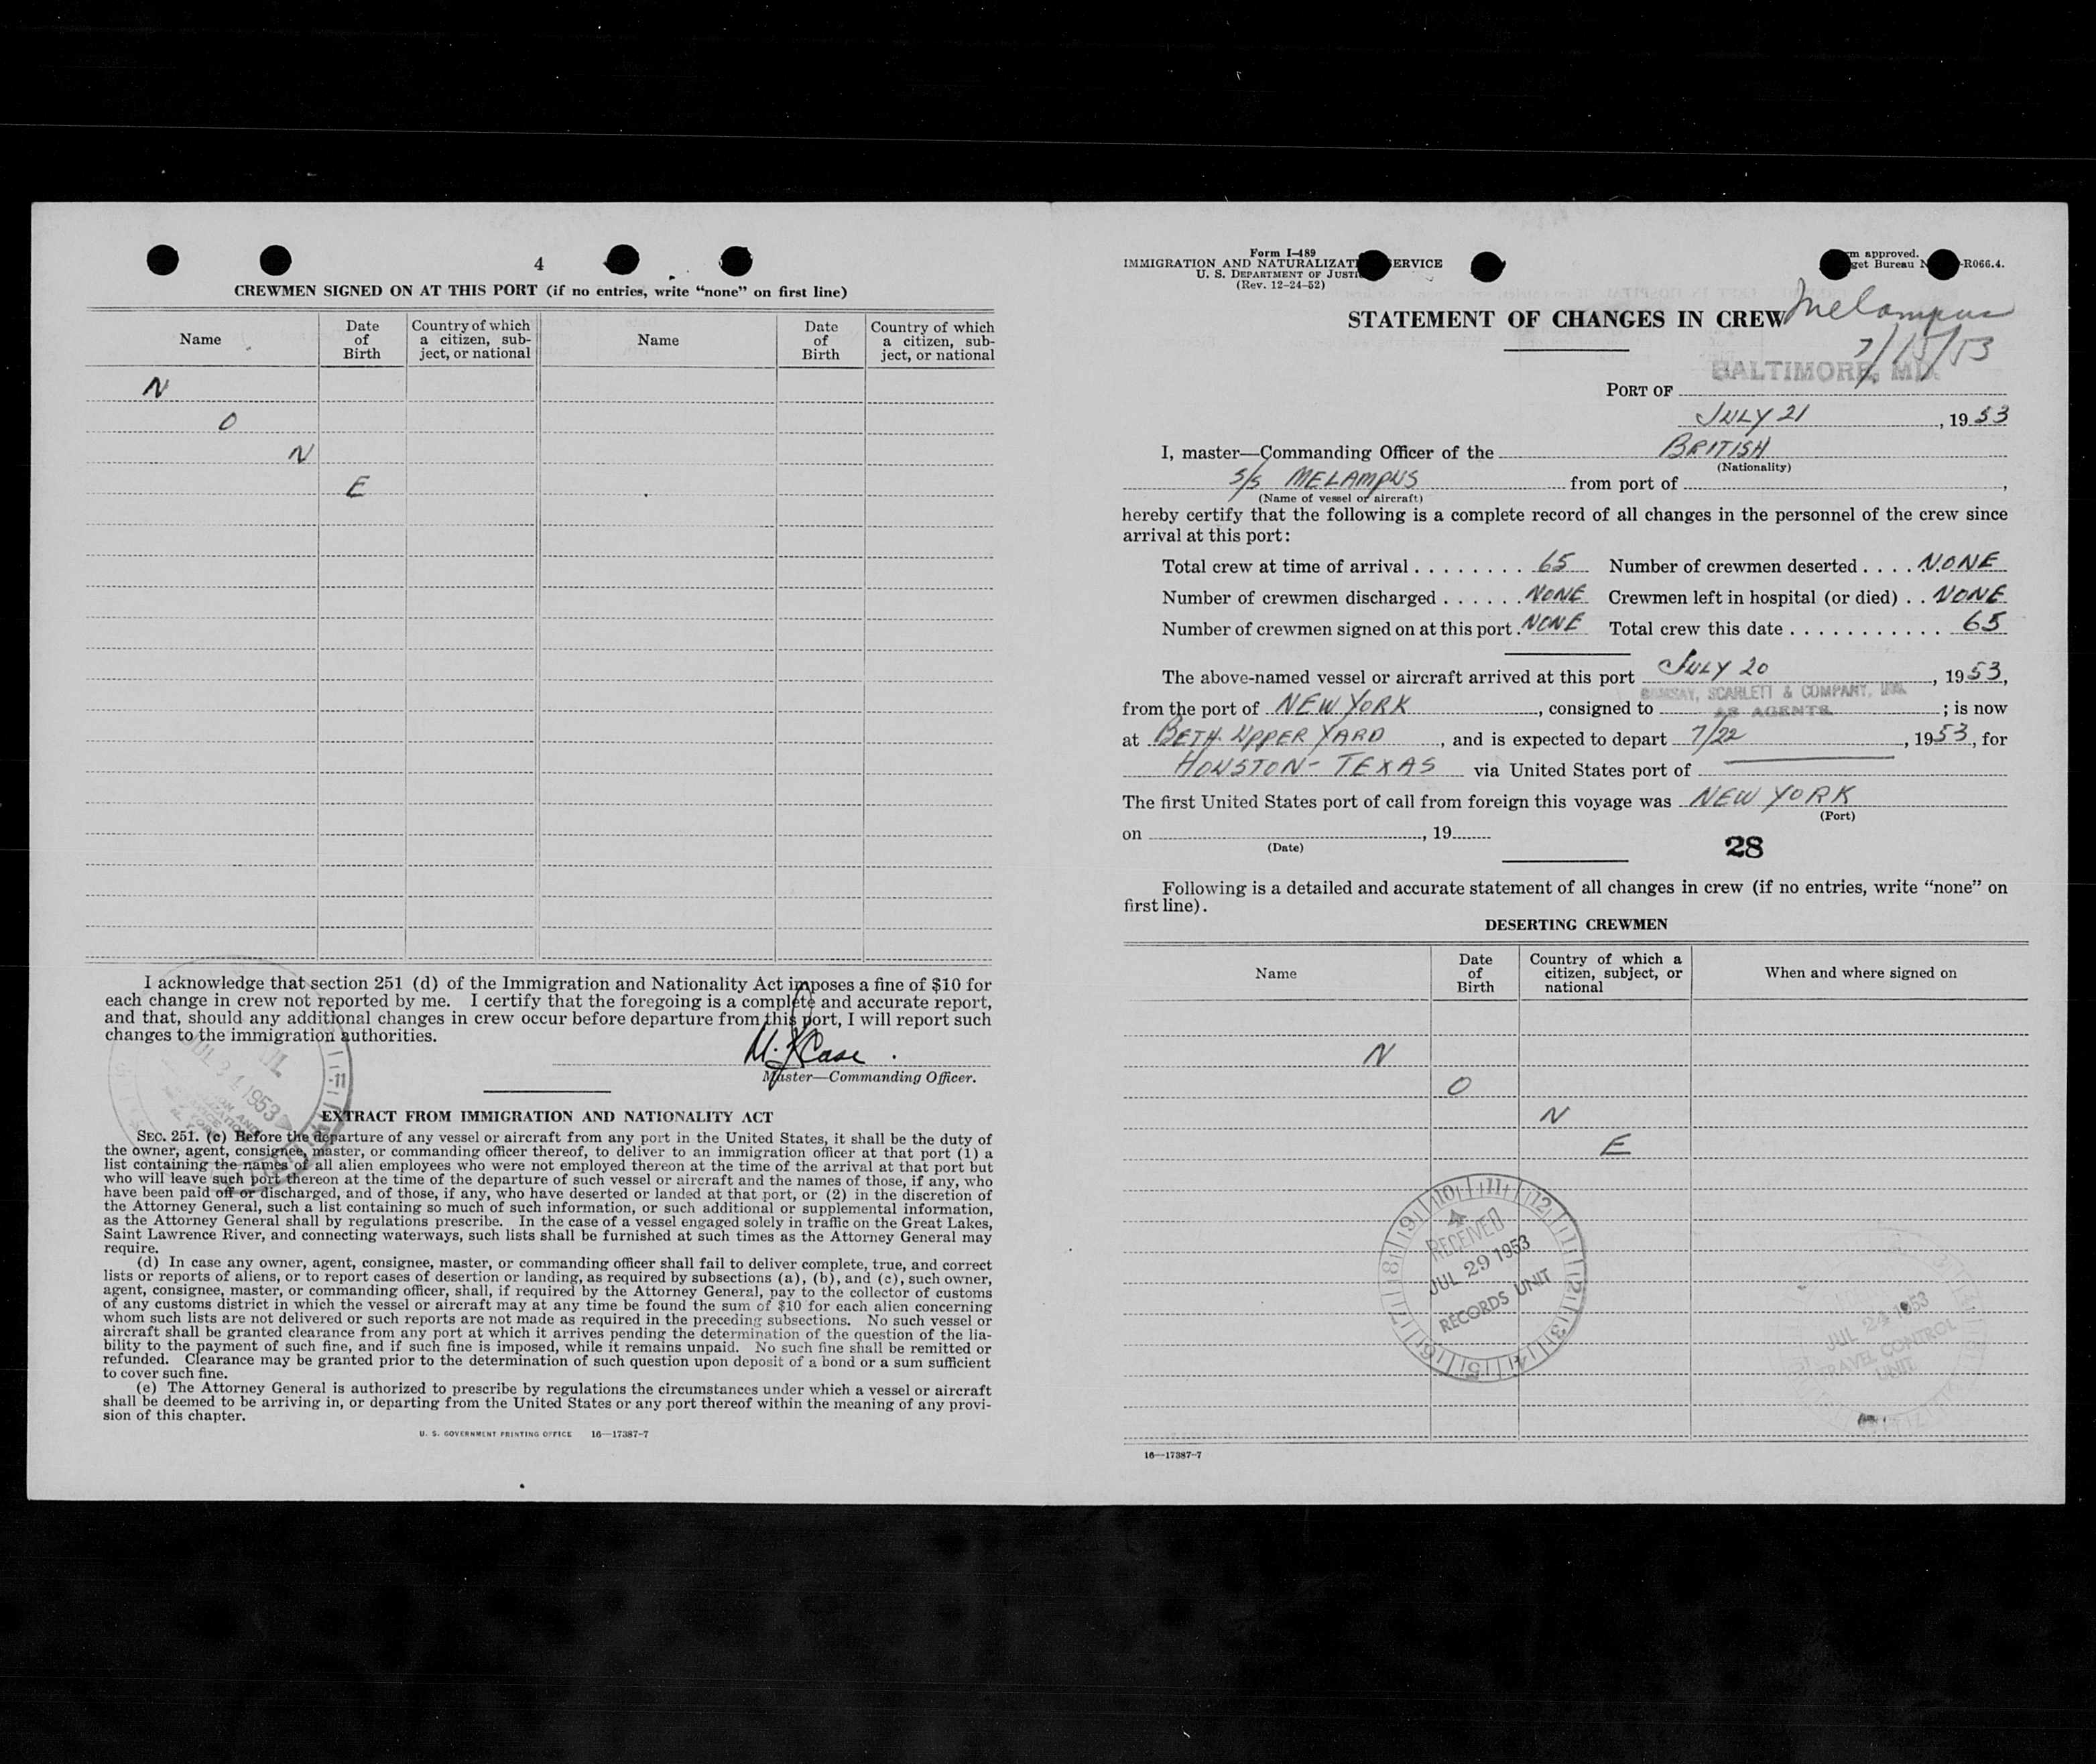 4
CREWMEN SIGNED ON AT THIS PORT (if no entries, write “none” on first line)
Name
Date of Birth
Country of which a citizen, sub-
ject, or national
Name
Date of Birth
Country of which a citizen, sub-
ject, or national
N
O
N
E
I acknowledge that section 251 (d) of the Immigration and Nationality Act imposes a fine of $10 for
each change in crew not reported by me. I certify that the foregoing is a complete and accurate report,
and that, should any additional changes in crew occur before departure from this port, I will report such
changes to the immigration authorities.
Case
Master—Commanding Officer.
1953
EXTRACT FROM IMMIGRATION AND NATIONALITY ACT
SEC. 251. (c) Before the departure of any vessel or aircraft from any port in the United States, it shall be the duty of
the owner, agent, consignee, master, or commanding officer thereof, to deliver to an immigration officer at that port (1) a
list containing the names of all alien employees who were not employed thereon at the time of the arrival at that port but
who will leave such port thereon at the time of the departure of such vessel or aircraft and the names of those, if any, who
have been paid off or discharged, and of those, if any, who have deserted or landed at that port, or (2) in the discretion of
the Attorney General, such a list containing so much of such information, or such additional or supplemental information,
as the Attorney General shall by regulations prescribe. In the case of a vessel engaged solely in traffic on the Great Lakes,
Saint Lawrence River, and connecting waterways, such lists shall be furnished at such times as the Attorney General may
require.
(d) In case any owner, agent, consignee, master, or commanding officer shall fail to deliver complete, true, and correct
lists or reports of aliens, or to report cases of desertion or landing, as required by subsections (a), (b), and (c), such owner,
agent, consignee, master, or commanding officer, shall, if required by the Attorney General, pay to the collector of customs
of any customs district in which the vessel or aircraft may at any time be found the sum of $10 for each alien concerning
whom such lists are not delivered or such reports are not made as required in the preceding subsections. No such vessel or
aircraft shall be granted clearance from any port at which it arrives pending the determination of the question of the lia-
bility to the payment of such fine, and if such fine is imposed, while it remains unpaid. No such fine shall be remitted or
refunded. Clearance may be granted prior to the determination of such question upon deposit of a bond or a sum sufficient
to cover such fine.
(e) The Attorney General is authorized to prescribe by regulations the circumstances under which a vessel or aircraft
shall be deemed to be arriving in, or departing from the United States or any port thereof within the meaning of any provi-
sion of this chapter.
U. S. GOVERNMENT PRINTING OFFICE 16—17387-7
Form I-489
IMMIGRATION AND NATURALIZATI ERVICE
U. S. DEPARTMENT OF JUSTI
(Rev. 12-24-52)
m approved.
get Bureau N -R066.4.
STATEMENT OF CHANGES IN CREW Melampus
7/15/53
PORT OF BALTIMORE, MD.
JULY 21, 1953
I, master—Commanding Officer of the BRITISH
(Nationality)
S/S MELAMPUS from port of ,
(Name of vessel or aircraft)
hereby certify that the following is a complete record of all changes in the personnel of the crew since
arrival at this port:
Total crew at time of arrival . . . . . . . . 65 Number of crewmen deserted . . . . NONE
Number of crewmen discharged . . . . . . NONE Crewmen left in hospital (or died) . . NONE
Number of crewmen signed on at this port . NONE Total crew this date . . . . . . . . . . . 65
The above-named vessel or aircraft arrived at this port JULY 20, 1953,
RAMSAY, SCARLETT & COMPANY, INC.
from the port of NEW YORK, consigned to AS AGENTS ; is now
at BETH. UPPER YARD, and is expected to depart 7/22, 1953, for
HOUSTON - TEXAS via United States port of
The first United States port of call from foreign this voyage was NEW YORK
(Port)
on , 19
(Date)
28
Following is a detailed and accurate statement of all changes in crew (if no entries, write “none” on
first line).
DESERTING CREWMEN
Name
Date of Birth
Country of which a citizen, subject, or national
When and where signed on
N
O
N
E
10 11 12
RECEIVED
JUL 29 1953
RECORDS UNIT
JUL 24 1953
TRAVEL CONTROL
UNIT
16—17387-7